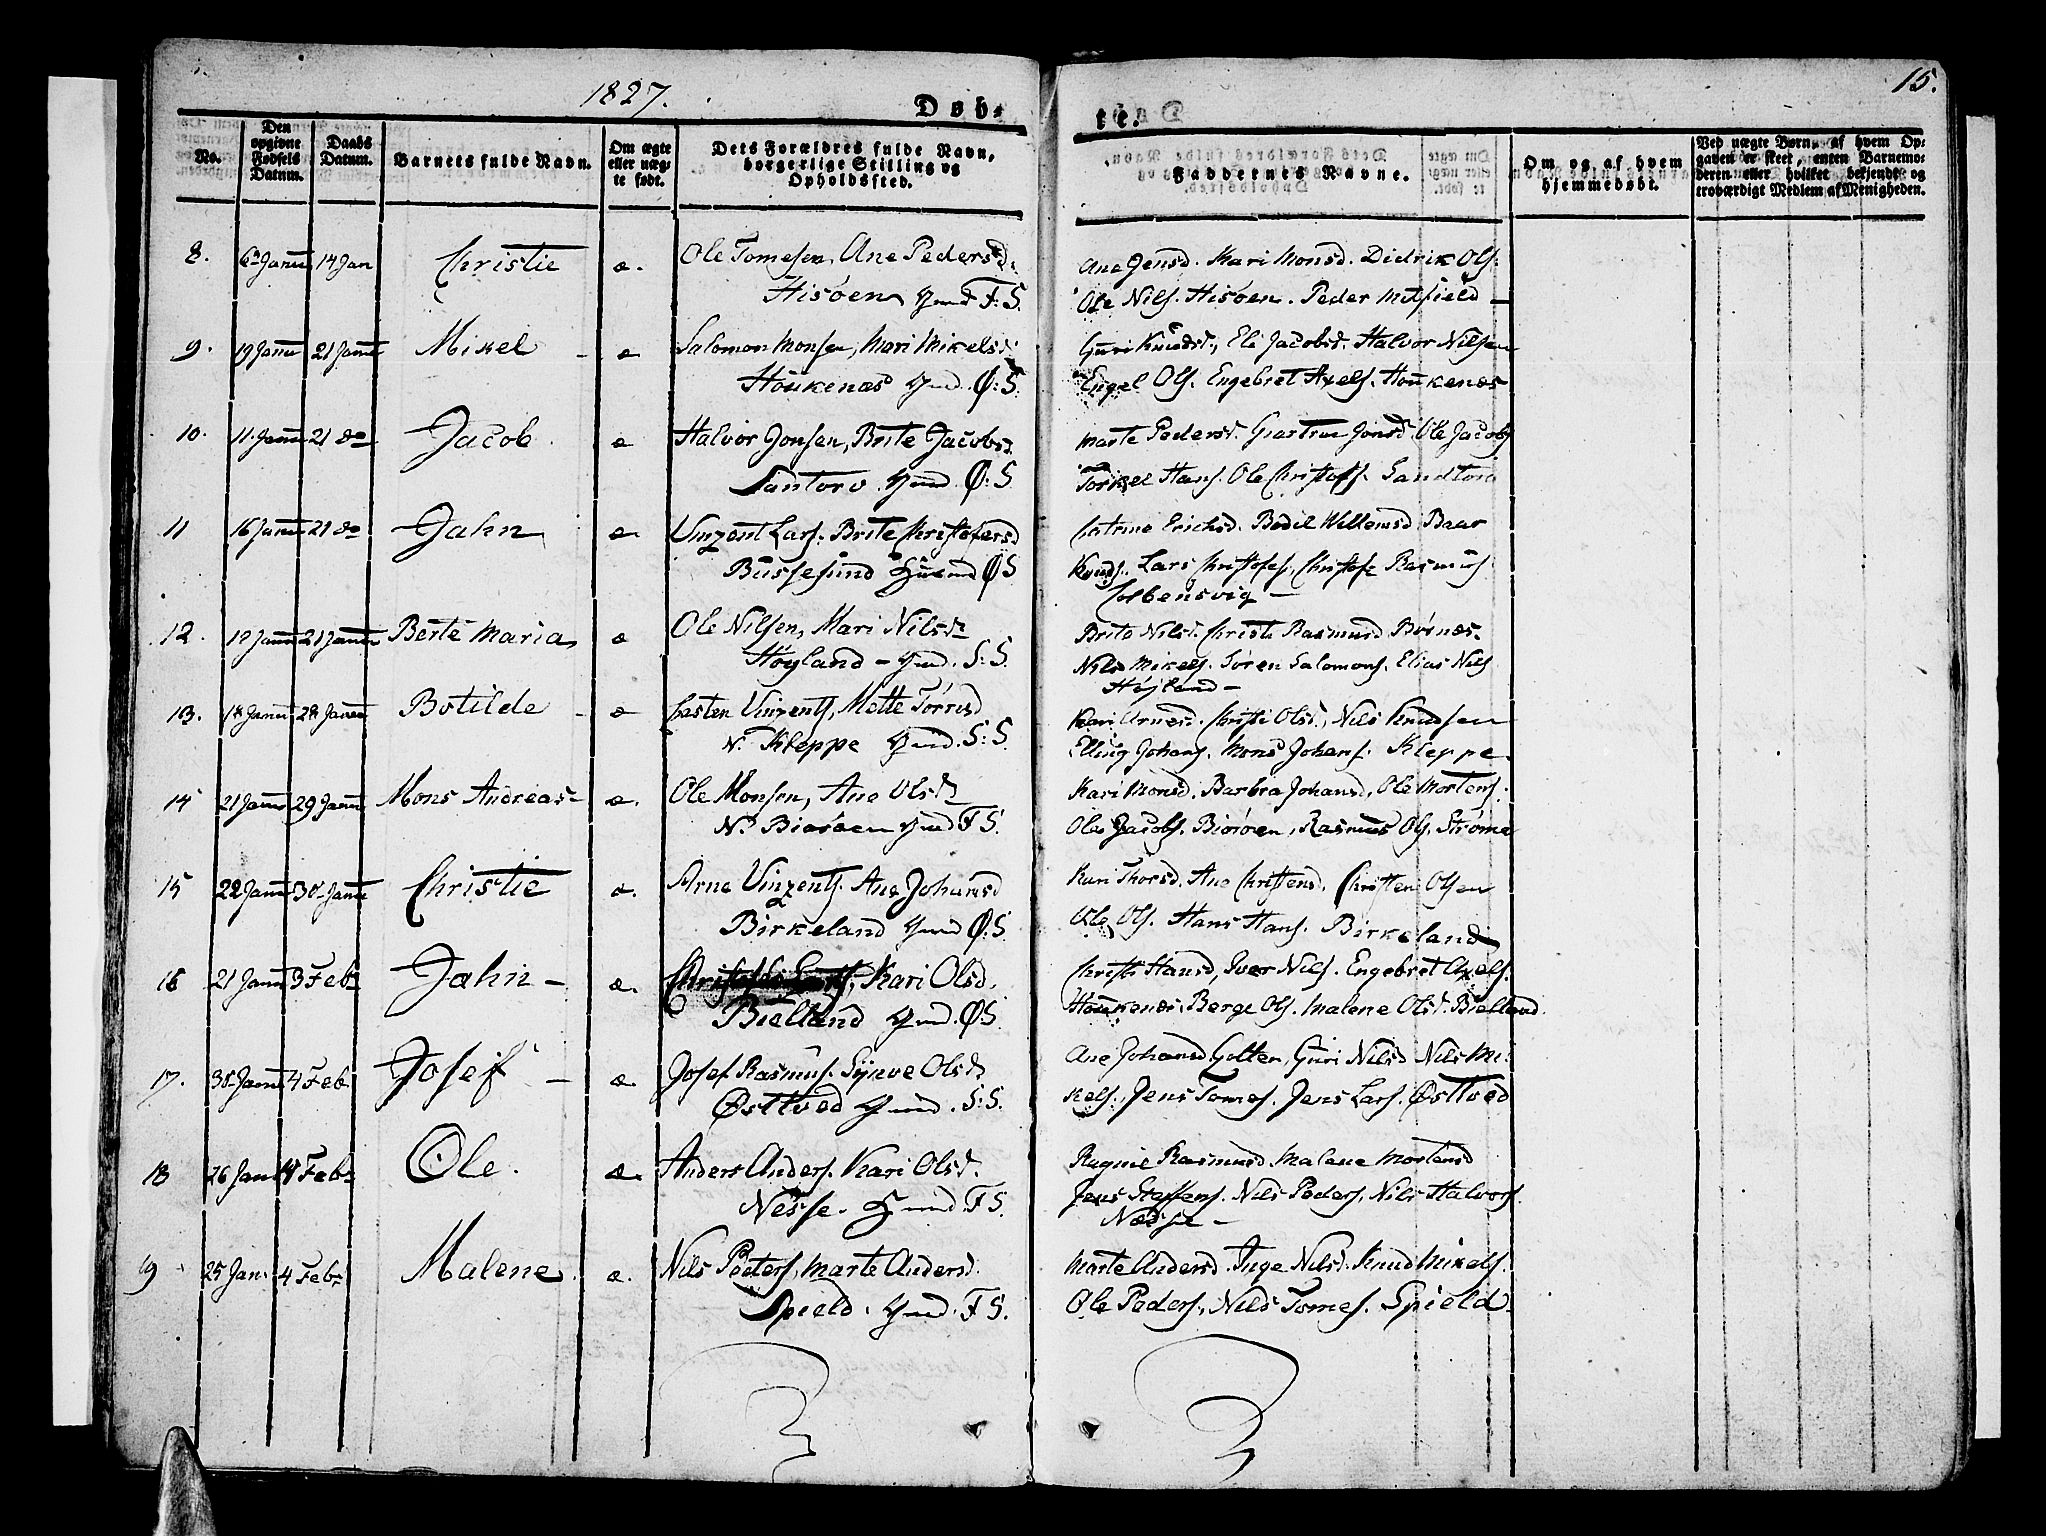 1827.
Døb-
te.
15.
No.
Den opgivne Fødsels Datum.
Daabs Datum.
Barnets fulde Navn.
Om ægte eller uæg-te født.
Dets Forældres fulde Navn, borgerlige Stilling og Opholdsted.
Faddernes Navne.
Om og af hvem hjemmedøbt.
Ved uægte Børn, af hvem Op-gaven er skeet, enten Barnemo-deren eller hvilket bekjendt og troværdigt Medlem af Menigheden.
8. 14 Jan Christie æ. Ole Tomesen, Ane Pedersd. Ane Jensd. Kari Monsd. Didrik Ols.
Hisøen F:S. Ole Nils. Hisøen. Peder
9. 19 Janu 21 Janu Mikel æ Salomon Monsen, Mari Mikelsd: Guri Knudsd., Eli Jacobsd. Halvor Nilsen
Houkenæs Ø:S. Engel Ols. Engebret Axels. Houkenæs
10. 11. Janu 21 do Jacob æ Halvor Jonsen, Brite Jacobsd. Marte Pedersd. Giertrue Jonsd. Ole Jacobs
Santorv Ø:S. Torkel Hans. Ole Christofs. Sandtorv
11 16 Janu 21 do Jahn æ Vinzent Lars. Brite Christofersd Catrine Erichsd. Bodil Willemsd. Baar
Bussesund ØS Knuds. Lars Christofes, Christofe Rasmus
Colbensvig —
12. 21 Janu Berte Maria æ Ole Nilsen, Mari Nilsd. Brite Nilsd. Christi Rasmusd Børnæs.
Høyland — S:S. Nils Mikels. Søren Salomons. Elias Nils
Høyland —
13. 18 Janu 28 Janu Botilde æ Casten Vinzents, Mette Torrisd Kari Arnesd. Christi Olsd., Nils Knudsen
N. Kleppe S:S. Elling Johans. Mons Johans. Kleppe
14 21 Janu 29 Janu Mons Andreas æ. Ole Monsen, Ane Olsd. Kari Monsd. Barbra Johansd, Ole Mortens.
N. Biorøen FS. Ole Jacobs. Biorøen, Rasmus Ols. Strøme
15 22 Janu 30 Janu Christie æ. Arne Vinzents. Ane Johansd Kari Thorsd. Ane Christensd. Christen Olsen
Birkeland Ø:S. Ole Ols. Hans Hans. Birkeland
16 21 Janu 3 Feb Jahn — æ. Kari Olsd. Christi Hansd, Iver Nils. Engebret Axels.
Bielland Ø:S. Houkenæs, Berge Ols. Malene Olsd. Bielland.
17. 30 Janu 4 Feb. Josef — æ. Josef Rasmus. Synve Olsd. Ane Johansd Golten, Guri Nilsd Nils Mi-
Østtved S:S. kels. Jens Tomes. Jens Lars. Østtved
18 26 Jan Feb Ole. æ. Anders Anders. Kari Olsd. Rasmusd. Malene Mortensd
Nesse. FS. Jens Steffens. Nils Peders, Nils Halvors.
Næsse —
19 25 Jan. 4 Feb Malene æ. Nils Peders, Marte Andersd. Marte Andersd. Inge Nilsd. Knud Mikels.
Spield. FS. Ole Peders., Nils Tomes. Spield